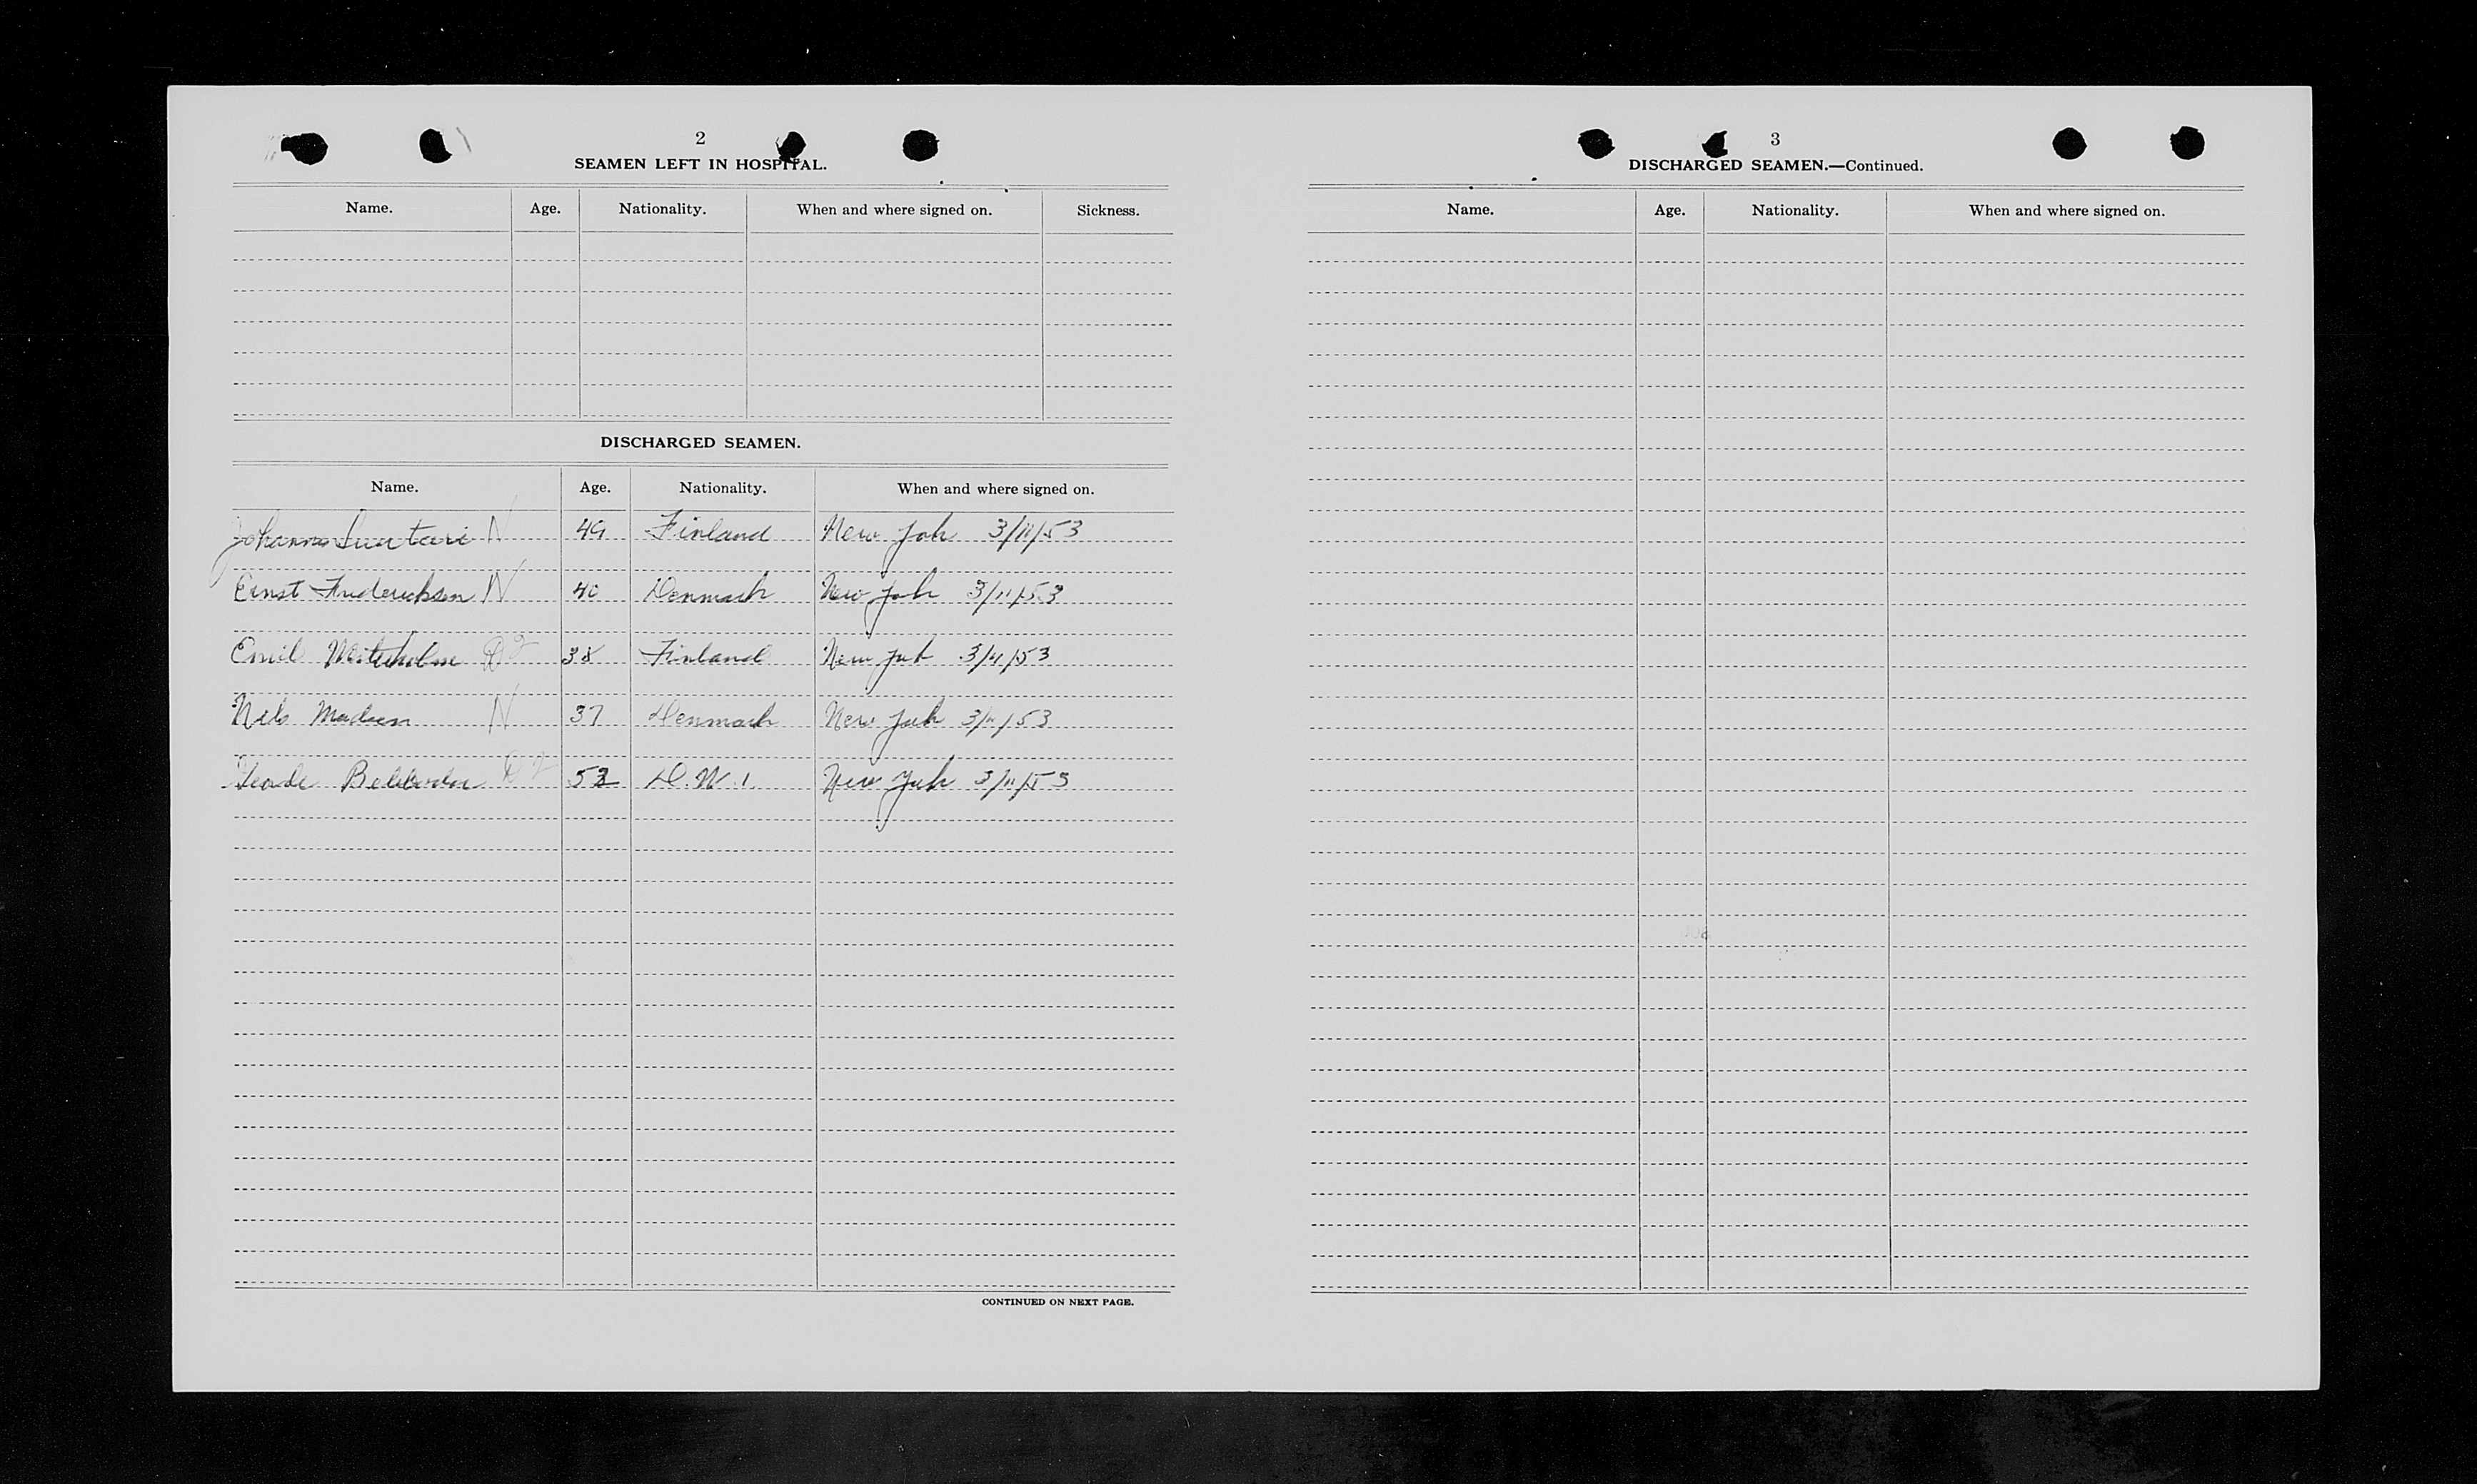 2
SEAMEN LEFT IN HOSPITAL.
Name. Age. Nationality. When and where signed on. Sickness.
DISCHARGED SEAMEN.
Name. Age. Nationality. When and where signed on.
Johannes Suutari N 49 Finland New York 3/11/53
Ernst Frederiksen N 40 Denmark New York 3/11/53
Emil 38 Finland New York 3/11/53
Nils Madsen N 37 Denmark New York 3/11/53
53 D.W.I New York 3/11/53
CONTINUED ON NEXT PAGE.
3
DISCHARGED SEAMEN.—Continued.
Name. Age. Nationality. When and where signed on.